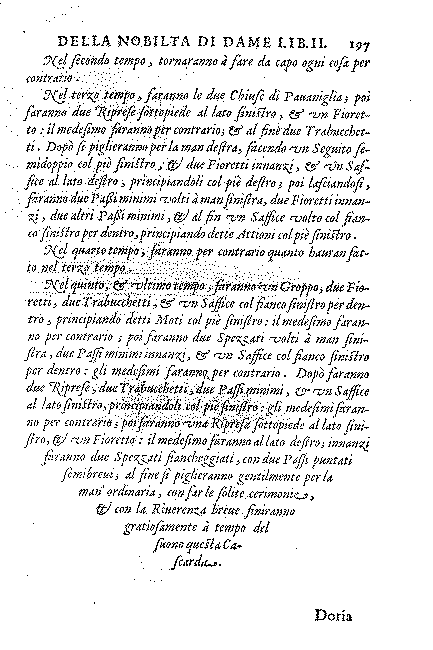 DELLA NOBILTA DI DAME LIB. II. 197
Nel secondo tempo, tornaranno à fare da capo ogni cosa per
contrario.
Nel terzo tempo, faranno le due Chiuse di Pauaniglia; poi
faranno due Riprese sottopiede al lato sinistro, & un Fioret-
to: il medesimo faranno per contrario; & al fine due Trabucchet-
ti. Dopò si piglieranno per la man destra, facendo un Seguito se-
midoppio col piè sinistro, & due Fioretti innanzi, & un Saf-
fice al lato destro, principiandoli col piè destro; poi lasciandosi,
faranno due Passi minimi volti à man sinistra, due Fioretti innan-
zi, due altri Passi minimi, & al fin un Saffice volto col fian-
co sinistro per dentro, principiando dette Attioni col piè sinistro.
Nel quarto tempo, faranno per contrario quanto hauran fat-
to nel terzo tempo.
Nel quinto, & vltimo tempo, faranno un Groppo, due Fio-
retti, due Trabucchetti, & un Saffice col fianco sinistro per den-
tro, principiando detti Moti col piè sinistro: il medesimo faran-
no per contrario; poi faranno due Spezzati volti à man sini-
stra, due Passi minimi innanzi, & un Saffice col fianco sinistro
per dentro: gli medesimi faranno per contrario. Dopò faranno
due Riprese, due Trabucchetti, due Passi minimi, & un Saffice
al lato sinistro, principiandoli col piè sinistro: gli medesimi faran-
no per contrario; poi faranno una Ripresa sottopiede al lato sini-
stro, & un Fioretto: il medesimo faranno al lato destro; innanzi
faranno due Spezzati fiancheggiati, con due Passi puntati
semibreui; al fine si piglieranno gentilmente per la
man' ordinaria, con far le solite cerimonie,
& con la Riuerenza breue finiranno
gratiosamente à tempo del
suono questa Ca-
scarda.
Doria